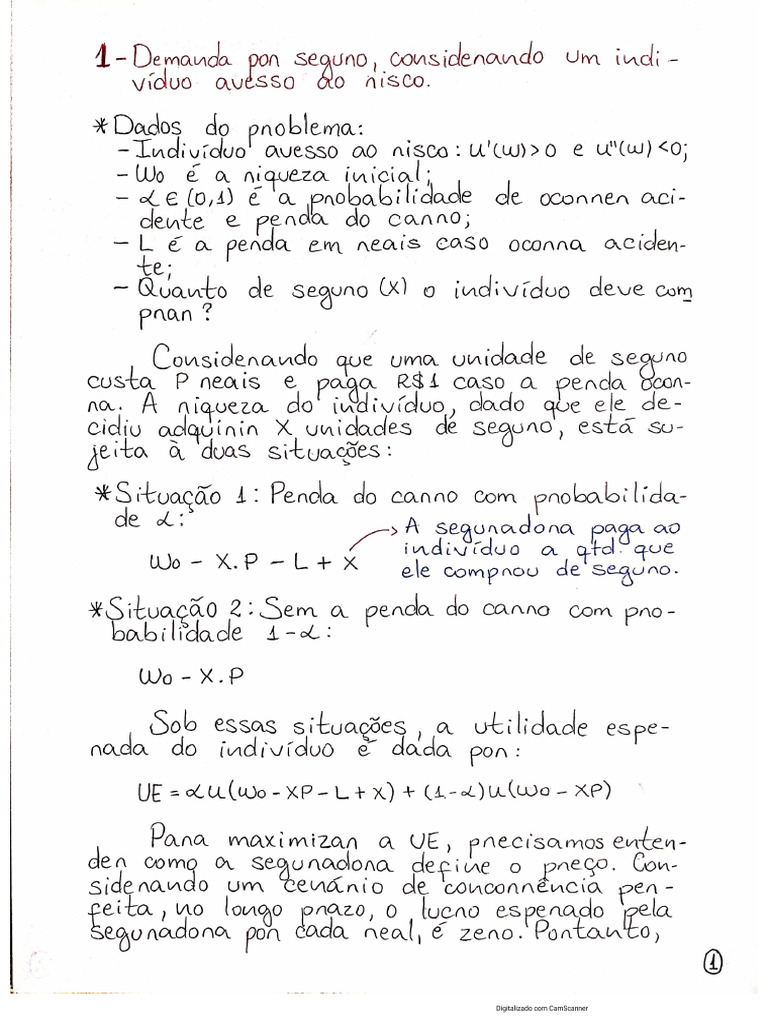 1 - Demanda por seguro, considerando um indi-
víduo avesso ao risco.
* Dados do problema:
- Indivíduo avesso ao risco: u'(w)>0 e u''(w)<0;
- Wo é a riqueza inicial;
- α ∈ (0,1) é a probabilidade de ocorrer aci-
dente e perda do carro;
- L é a perda em reais caso ocorra aciden-
te;
- Quanto de seguro (X) o indivíduo deve com
prar?
Considerando que uma unidade de seguro
custa P reais e paga R$1 caso a perda ocor-
ra. A riqueza do indivíduo, dado que ele de-
cidiu adquirir X unidades de seguro, está su-
jeita à duas situações:
* Situação 1: Perda do carro com probabilida-
de α:
Wo - X.P - L + X
A seguradora paga ao
indivíduo a qtd. que
ele comprou de seguro.
* Situação 2: Sem a perda do carro com pro-
babilidade 1-α:
Wo - X.P
Sob essas situações, a utilidade espe-
rada do indivíduo é dada por:
UE = αu(Wo - XP - L + X) + (1-α)u(Wo - XP)
Para maximizar a UE, precisamos enten-
der como a seguradora define o preço. Con-
siderando um cenário de concorrência per-
feita, no longo prazo, o lucro esperado pela
seguradora por cada real, é zero. Portanto,
1
Digitalizado com CamScanner